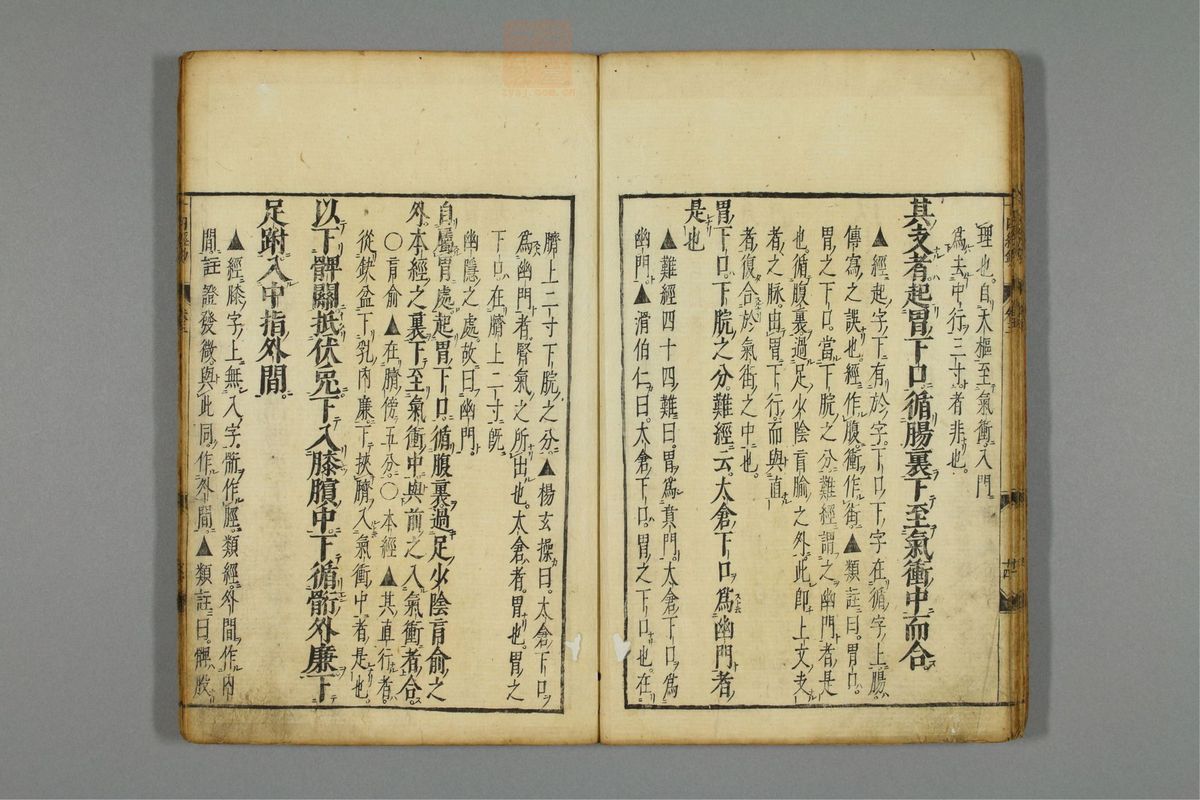 理也。自天樞至氣衝。入門
為去中行三寸者非也。
其支者起胃下口循腸裏下至氣衝中而合。
▲經起字下有於字。下口下字在循字上腸。
傳寫之誤也。經作腹。衝作街。▲類註曰。胃口。
胃之下口。當下脘之分。難經謂之幽門者是
也。循腹裏。過足少陰肓腧之外。此即上文支
者之脉。由胃下行。而與直
者。復合於氣街之中也。
胃下口。下脘之分。難經云。太倉下口。為幽門者
是也
▲難經四十四難曰。胃為賁門。太倉下口。為
幽門。▲滑伯仁曰。太倉下口。胃之下口也。在
臍上二寸下脘之分。▲楊玄操曰。太倉下口。
為幽門者。腎氣之所出也。太倉者。胃也。胃之
下口。在臍上二寸。既
幽隱之處。故曰幽門。
自屬胃處起胃下口。循腹裏過足少陰肓俞之
外。本經之裏下至氣衝中。與前之入氣衝者合。
○肓俞▲在臍傍五分。○本經▲其直行者。
從缺盆下乳內廉。下挾臍入氣衝中者是也。
以下髀關抵伏兔下入膝臏中。下循䯒外廉下
足跗入中指外間。
▲經膝字上無入字。䯒作脛。類經外間作內
間。註證發微。與此同作外間。▲類註曰。髀股